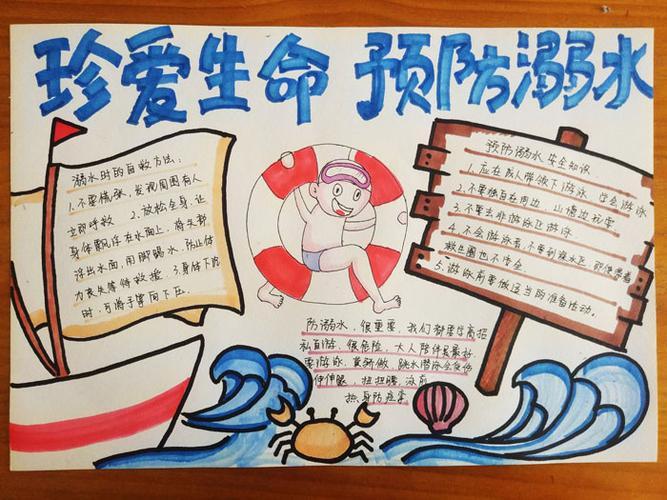 珍爱生命 预防溺水
溺水时的自救方法：
1.不要慌张，发现周围有人
立即呼救 2.放松全身，让
身体飘浮在水面上，将头部
浮出水面，用脚踢水，防止体
力丧失等待救援 3.身体下沉
时，可将手掌向下压。
预防溺水安全知识
1.应在成人带领下游泳 学会游泳
2.不要独自在河边 山塘边玩耍
3.不要去非游泳区游泳
4.不会游泳者，不要到深水区，即使带着
救生圈也不安全
5.游泳前要做适当的准备活动。
防溺水，很重要，我们都要学高招
私自游，很危险，大人陪伴是最好
要游泳，莫骄傲，跳水潜泳会
伸伸腿，扭扭腰，泳前
热身防痉挛